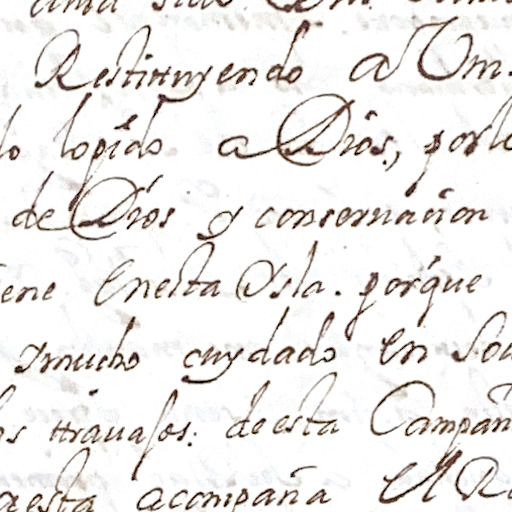 Restittuyendo a Vm.
lo lo pido a Dios, por lo
de Dios y conseruaçion
iene en esta Ysla. porque
Y mucho cuydado en
os ttrauaJos: de esta Campañ
a esta acompaña el R